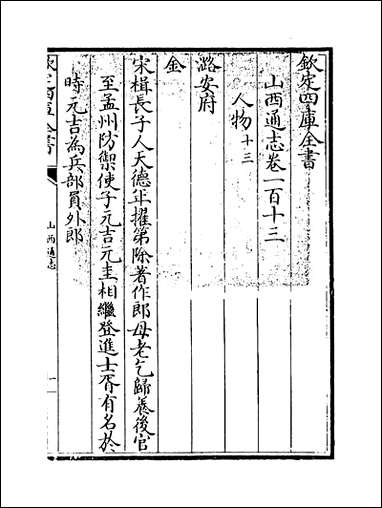 欽定四庫全書
山西通志卷一百十三
人物十三
潞安府
金
宋楫長子人天德年擢第除著作郎母老乞歸養後官
至孟州防禦使子元吉元圭相繼登進士胥有名於
時元吉為兵部員外郎
欽定四庫全書
山西通志
一